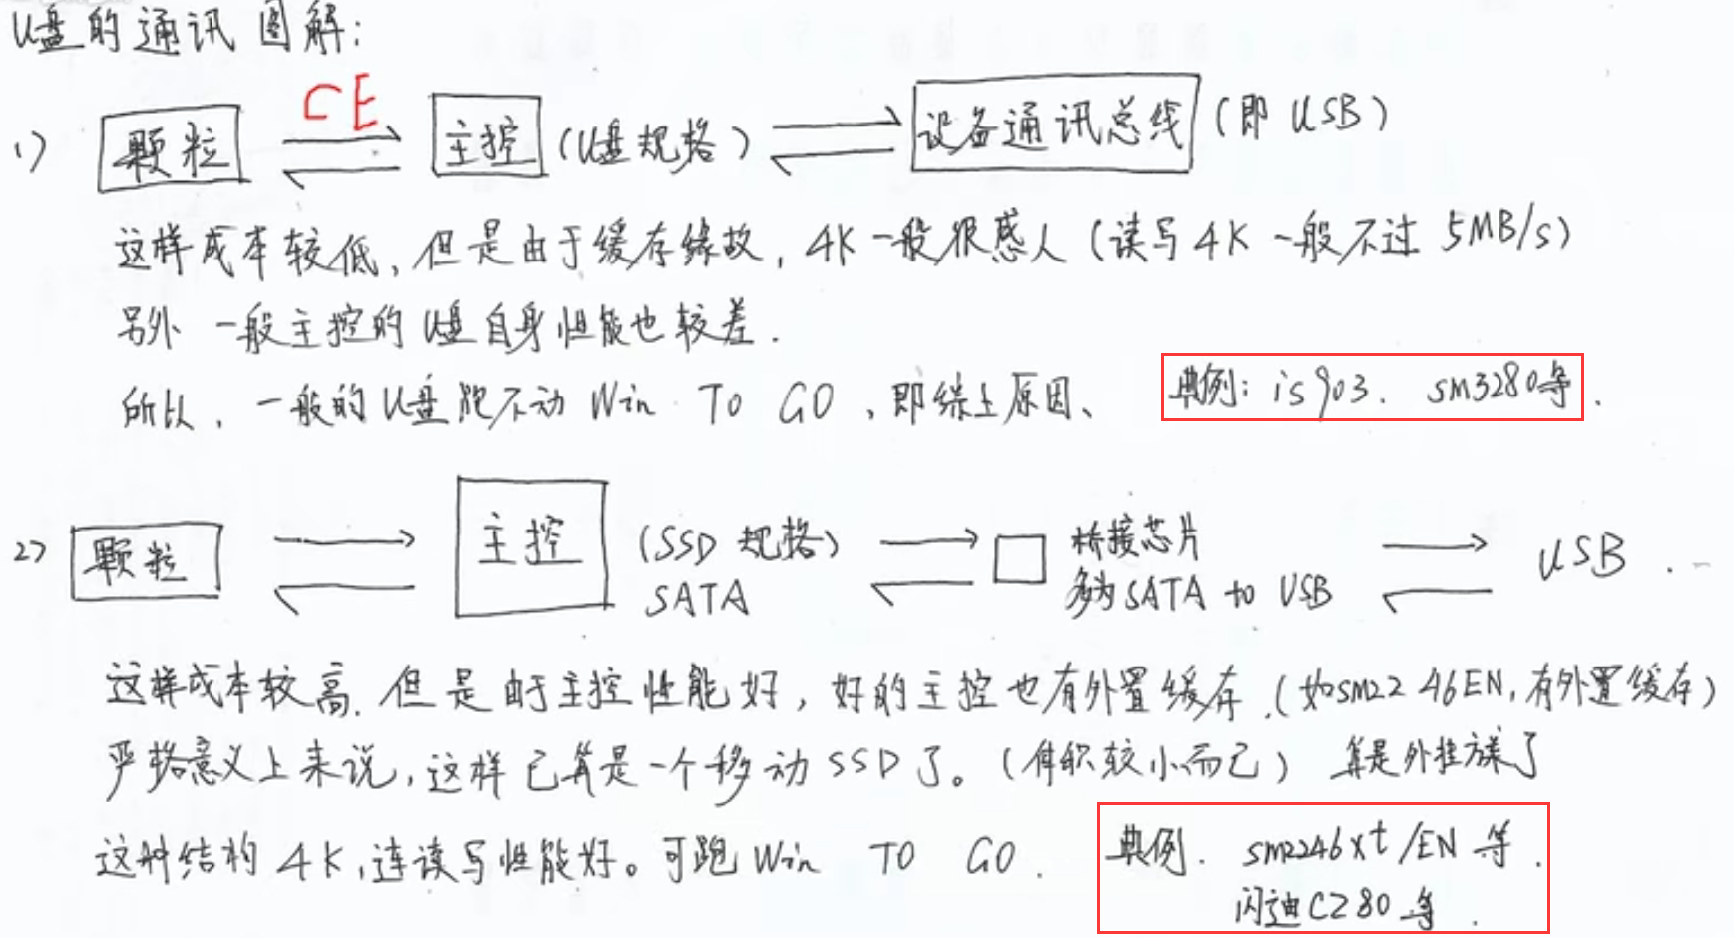 U盘的通讯图解:
CE
1) 颗粒 主控 (U盘规格) 设备通讯总线 (即 USB)
这样成本较低, 但是由于缓存缘故, 4K一般很感人 (读写4K一般不过 5MB/s)
另外 一般主控的U盘自身性能也较差.
所以, 一般的U盘跑不动 Win TO GO, 即综上原因、 典例: is903. sm3280等.
2) 颗粒 主控 (SSD 规格) 桥接芯片 USB.
SATA 多为SATA to USB
这样成本较高. 但是由于主控性能好, 好的主控也有外置缓存.(如sm2246EN,有外置缓存)
严格意义上来说, 这样已算是一个移动SSD了。(体积较小而已) 算是外挂方案了
这种结构 4K,连读写性能好。可跑 Win TO GO. 典例. sm2246xt/EN 等.
闪迪CZ80 等.